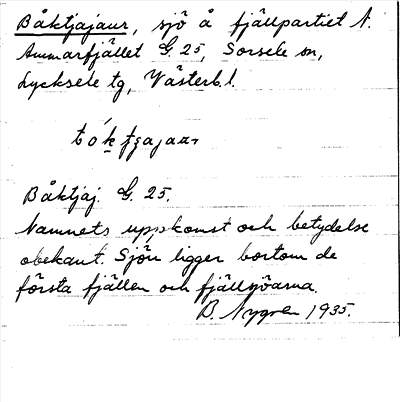 Båktjajaur, sjö å fjällpartiet N.
Ammarfjället G. 25, Sorsele sn,
Lycksele tg, Västerb. l.
Båktjaj. G. 25.
Namnets uppkomst och betydelse
obekant. Sjön ligger bortom de
första fjällen och
B. Nygren 1935.